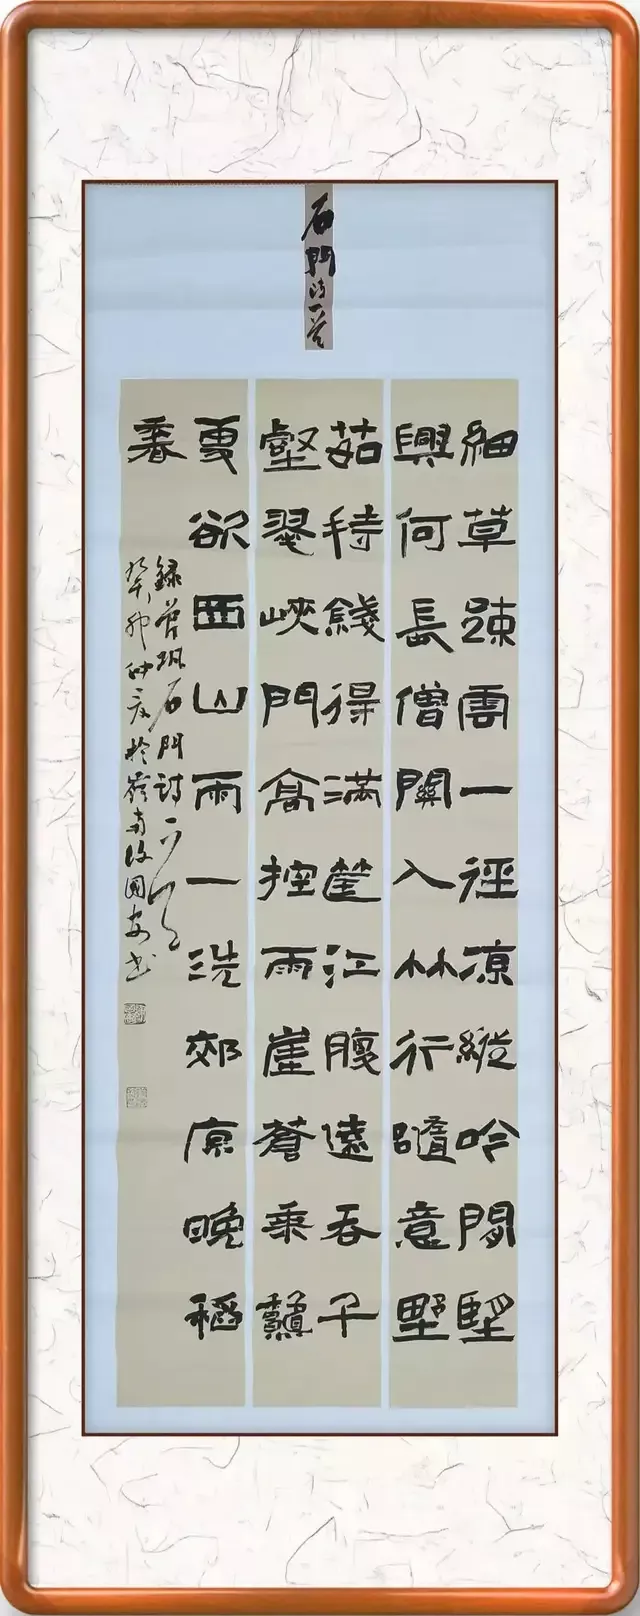 石門詩一首
細草踈雲一徑凉縱吟閒望
興何長僧關入竹行隨意野
茹持綫得滿筐江腹遠吞千
壑翠峽門高控雨崖蒼乘
更欲西山雨一洗郊原晚稻
香
錄曾巩石門詩一首
癸卯仲夏於嶺南國安书